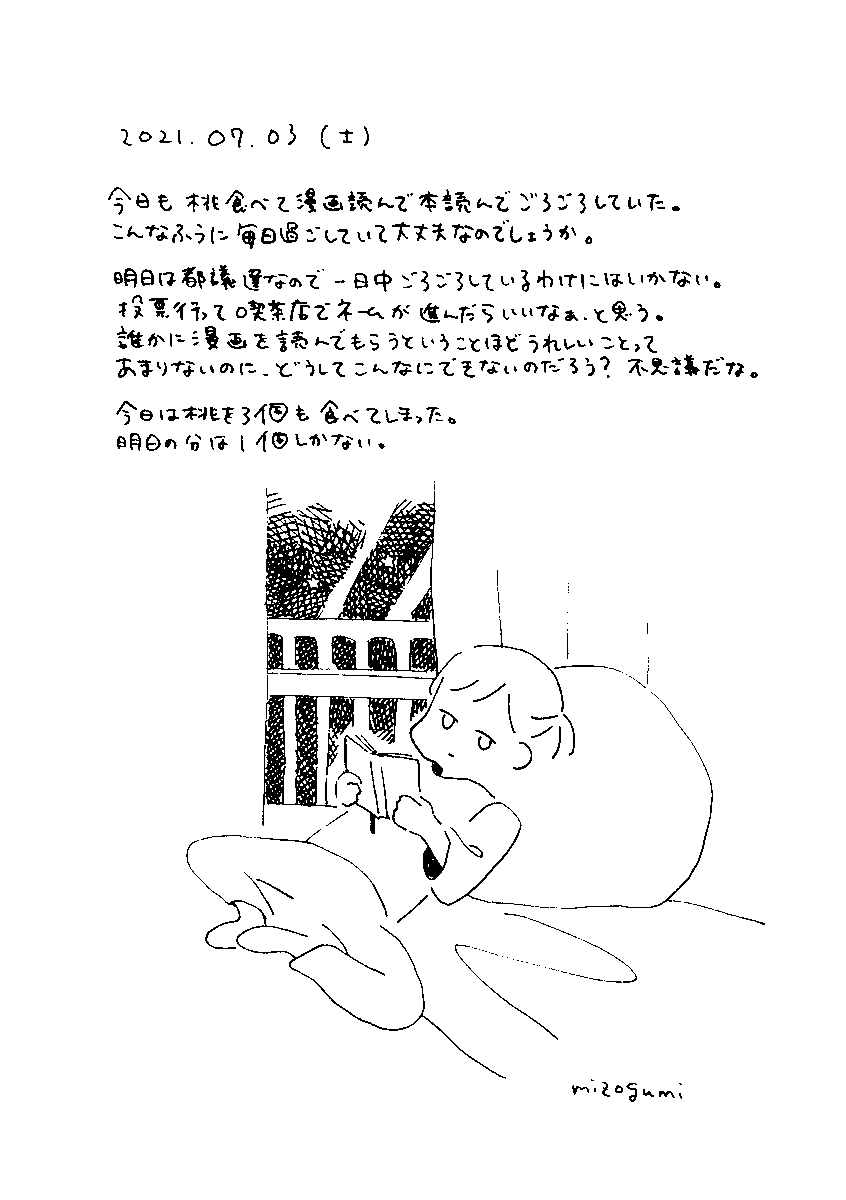 2021.07.03 (土)
今日も 桃食べて漫画読んで本読んでごろごろしていた。
こんなふうに毎日過ごしていて大丈夫なのでしょうか。
明日は都議選なので一日中ごろごろしているわけにはいかない。
投票行って喫茶店でネームが進んだらいいなぁ、と思う。
誰かに漫画を読んでもらうということほどうれしいことって
あまりないのに、どうしてこんなにできないのだろう? 不思議だな。
今日は桃を3個も食べてしまった。
明日の分は1個しかない。
mizogumi